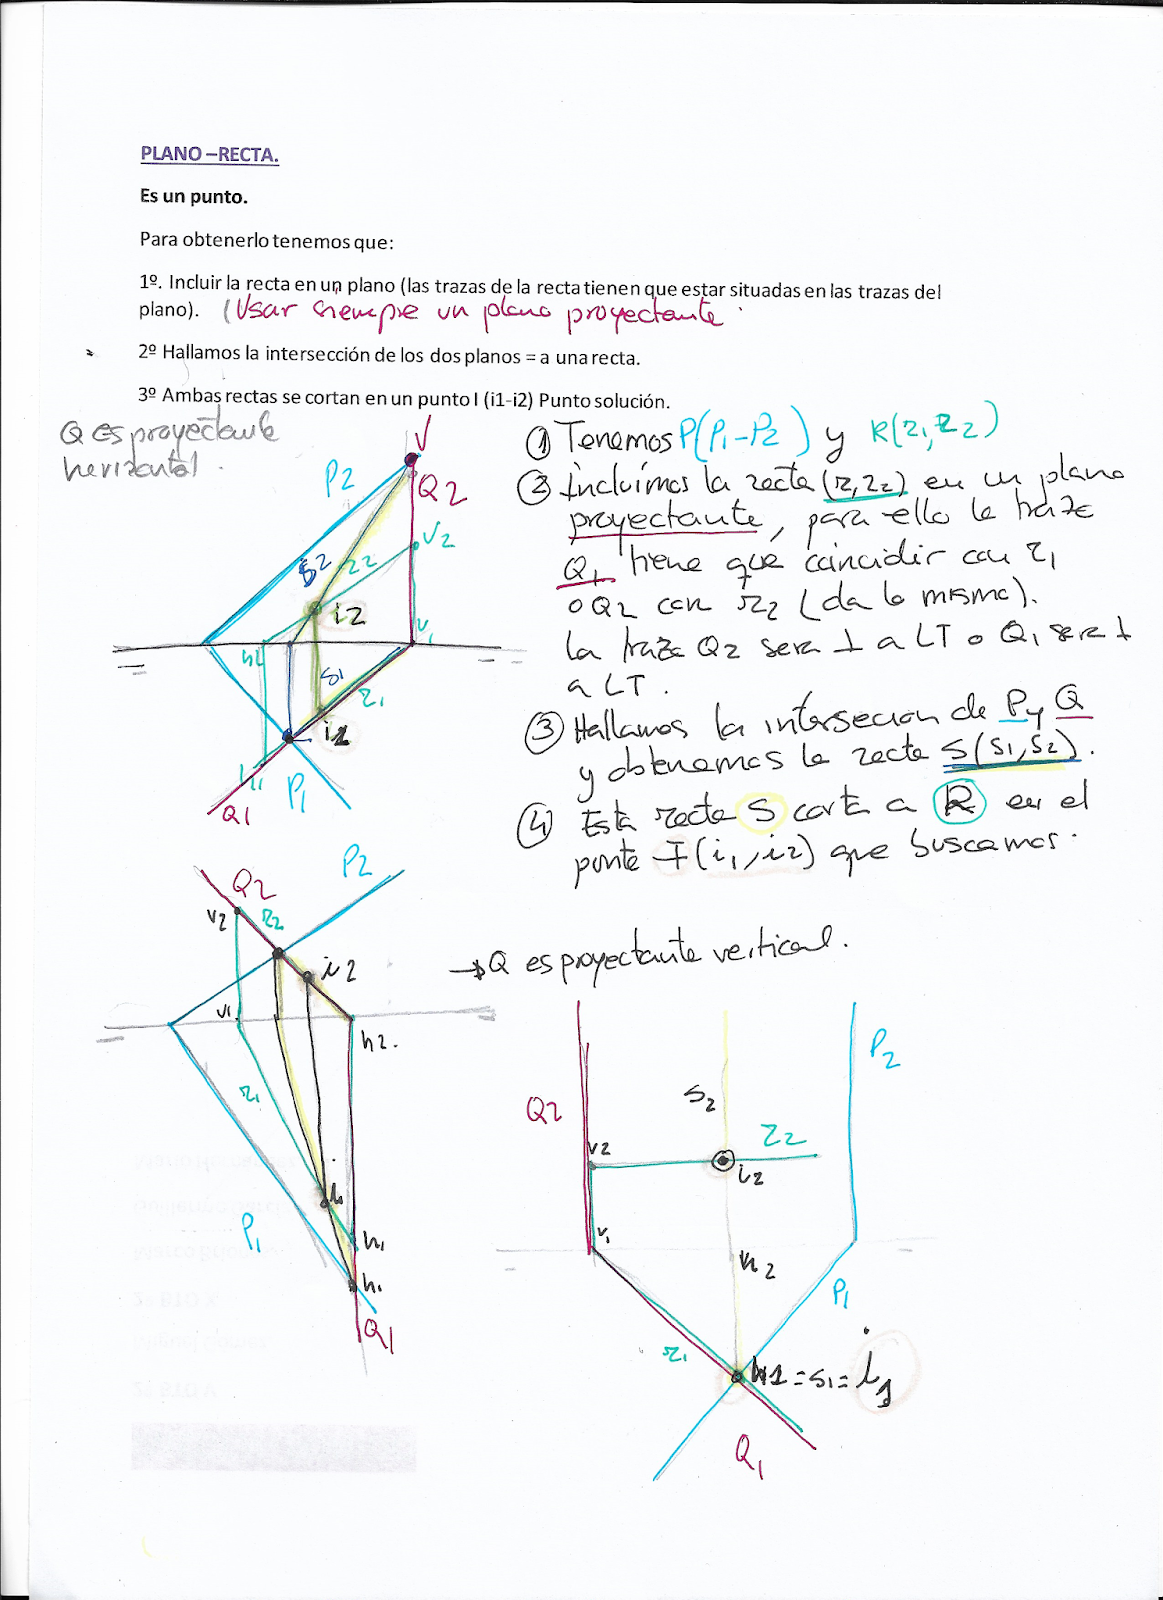 PLANO –RECTA.
Es un punto.
Para obtenerlo tenemos que:
1º. Incluir la recta en un plano (las trazas de la recta tienen que estar situadas en las trazas del
plano). (Usar siempre un plano proyectante.
2º Hallamos la intersección de los dos planos = a una recta.
3º Ambas rectas se cortan en un punto I (i1-i2) Punto solución.
Q es proyectante
horizontal.
① Tenemos P(P1-P2) y R(r1,r2)
② Incluímos la recta (r1,r2) en un plano
proyectante, para ello la traza
Q1 tiene que coincidir con r1
o Q2 con r2 (da lo mismo).
La traza Q2 será ⊥ a LT o Q1 será ⊥
a LT.
③ Hallamos la interseción de P y Q
y obtenemos la recta S(s1,s2).
④ Esta recta S corta a R en el
punto I(i1,i2) que buscamos.
V
P2
Q2
V2
s2
r2
i2
V1
h2
s1
r1
i1
h1
P1
Q1
P2
Q2
V2
r2
i2
V1
h2.
r1
i1
P1
h1
h1
Q1
→Q es proyectante vertical.
P2
s2
Q2
V2
r2
i2
V1
h2
P1
r1
h1=s1=i1
Q1